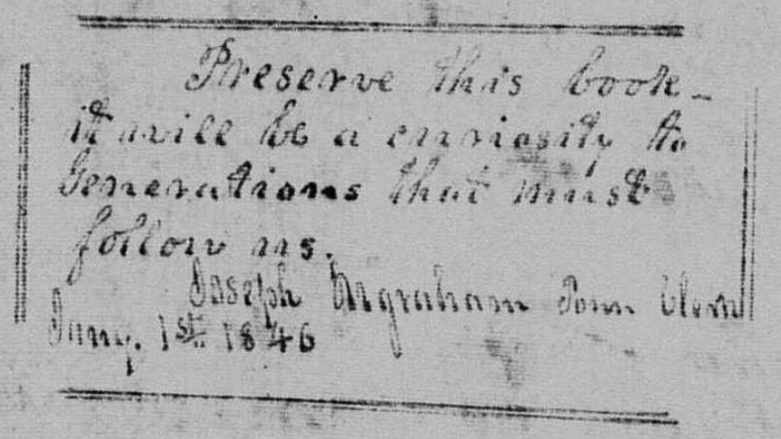 Preserve this book-
it will be a curiosity to
Generations that must
follow us.
Joseph Ingraham Town Clerk
Jany. 1st 1846